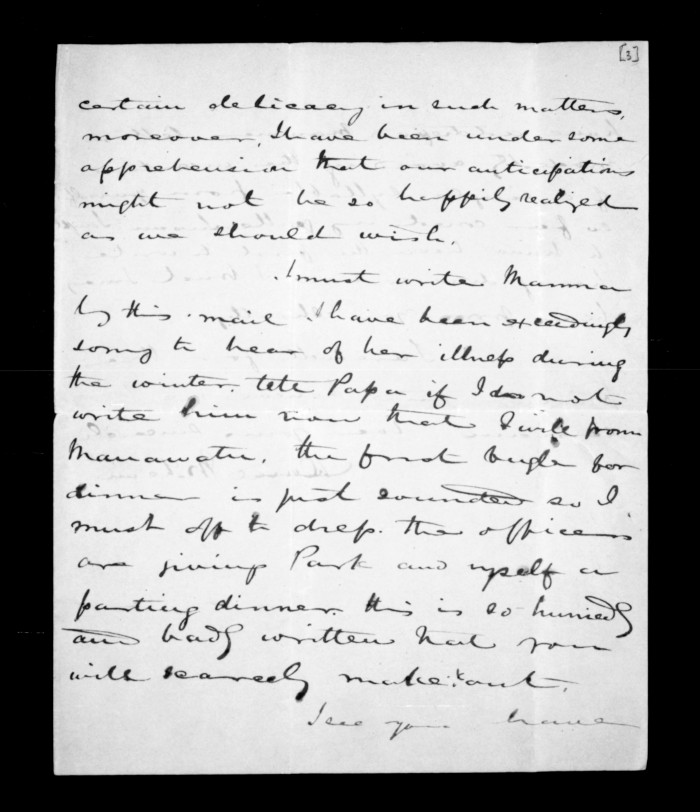 [3]
certain delicacy in such matters,
moreover, I have been under some
apprehension that our anticipations
might not be so happily realized
as we should wish.
I must write Mamma
by this mail. I have been exceedingly
sorry to hear of her illness during
the winter. tell Papa if I do not
write him now that I will from
Manawatu. the first bugle for
dinner is just sounded so I
must off to dress. the officers
are giving Park and myself a
parting dinner. this is so hurriedly
and badly written that you
will scarcely make it out.
I see you have